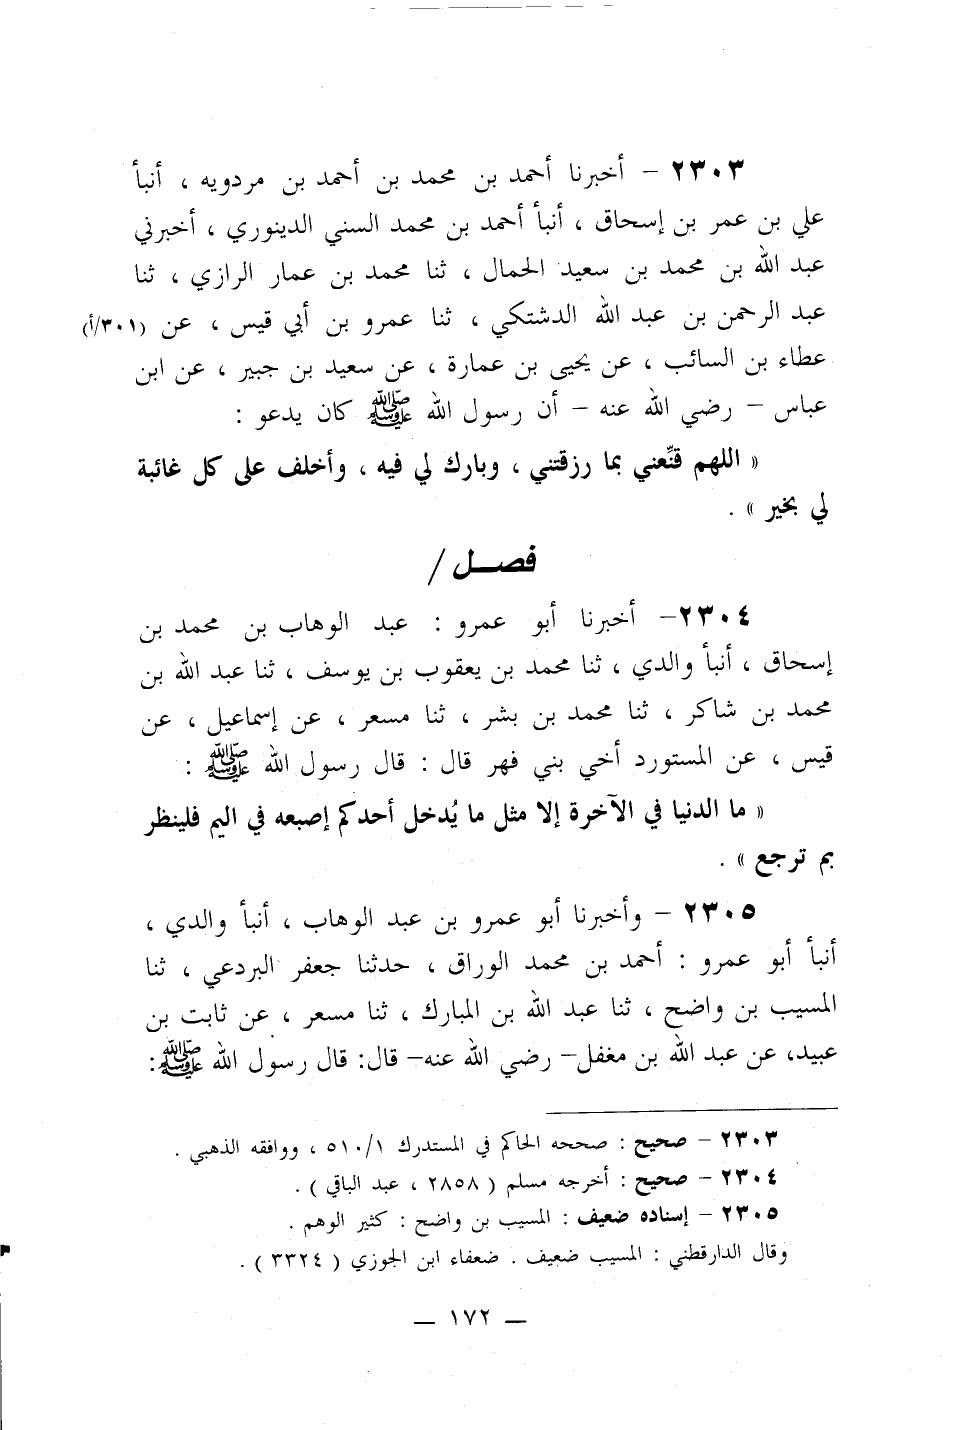 ٢٣٠٣ – أخبرنا أحمد بن محمد بن أحمد بن مردويه ، أنبأ
علي بن عمر بن إسحاق ، أنبأ أحمد بن محمد السني الدينوري ، أخبرني
عبد الله بن محمد بن سعيد الحمال ، ثنا محمد بن عمار الرازي ، ثنا
عبد الرحمن بن عبد الله الدشتكي ، ثنا عمرو بن أبي قيس ، عن (٣٠١/أ)
عطاء بن السائب ، عن يحيى بن عمارة ، عن سعيد بن جبير ، عن ابن
عباس – رضي الله عنه – أن رسول الله ﷺ كان يدعو :
« اللهم قنِّعني بما رزقتني ، وبارك لي فيه ، وأخلف على كل غائبة
لي بخير » .
فصــل /
٢٣٠٤– أخبرنا أبو عمرو : عبد الوهاب بن محمد بن
إسحاق ، أنبأ والدي ، ثنا محمد بن يعقوب بن يوسف ، ثنا عبد الله بن
محمد بن شاكر ، ثنا محمد بن بشر ، ثنا مسعر ، عن إسماعيل ، عن
قيس ، عن المستورد أخي بني فهر قال : قال رسول الله ﷺ :
« ما الدنيا في الآخرة إلا مثل ما يُدخل أحدكم إصبعه في اليم فلينظر
بم ترجع » .
٢٣٠٥ – وأخبرنا أبو عمرو بن عبد الوهاب ، أنبأ والدي ،
أنبأ أبو عمرو : أحمد بن محمد الوراق ، حدثنا جعفر البردعي ، ثنا
المسيب بن واضح ، ثنا عبد الله بن المبارك ، ثنا مسعر ، عن ثابت بن
عبيد، عن عبد الله بن مغفل– رضي الله عنه– قال: قال رسول الله ﷺ:
٢٣٠٣ – صحيح : صححه الحاكم في المستدرك ٥١٠/١ ، ووافقه الذهبي .
٢٣٠٤ – صحيح : أخرجه مسلم ( ٢٨٥٨ ، عبد الباقي ) .
٢٣٠٥ – إسناده ضعيف : المسيب بن واضح : كثير الوهم .
وقال الدارقطني : المسيب ضعيف . ضعفاء ابن الجوزي ( ٣٣٢٤ ) .
– ١٧٢ –